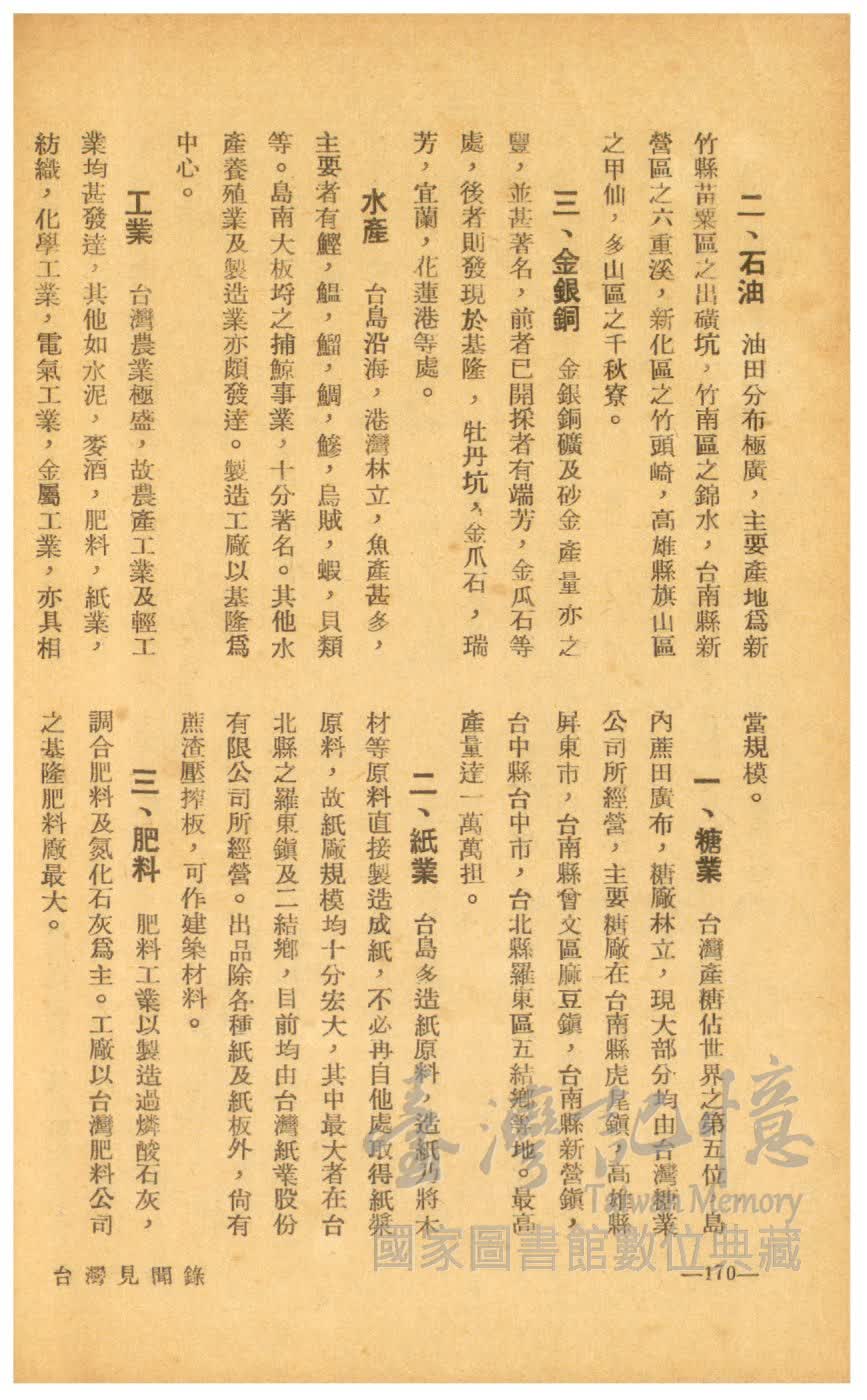 二、石油　油田分布極廣，主要產地爲新
竹縣苗粟區之出磺坑，竹南區之錦水，台南縣新
營區之六重溪，新化區之竹頭崎，高雄縣旗山區
之甲仙，多山區之千秋寮。
三、金銀銅　金銀銅礦及砂金產量亦之
豐，並甚著名，前者已開採者有端芳，金瓜石等
處，後者則發現於基隆，牡丹坑，金爪石，瑞
芳，宜蘭，花蓮港等處。
水產　台島沿海，港灣林立，魚產甚多，
主要者有鰹，鰮，鰡，鯛，鰺，烏賊，蝦，貝類
等。島南大板埒之捕鯨事業，十分著名。其他水
產養殖業及製造業亦頗發達。製造工廠以基隆爲
中心。
工業　台灣農業極盛，故農產工業及輕工
業均甚發達，其他如水泥，麥酒，肥料，紙業，
紡織，化學工業，電氣工業，金屬工業，亦具相
當規模。
一、糖業　台灣產糖佔世界之第五位，島
內蔗田廣布，糖廠林立，現大部分均由台灣糖業
公司所經營，主要糖廠在台南縣虎尾鎭，高雄縣
屛東市，台南縣曾文區麻豆鎭，台南縣新營鎭，
台中縣台中市，台北縣羅東區五結鄉等地。最高
產量達一萬萬担。
二、紙業　台島多造紙原料，造紙乃將木
材等原料直接製造成紙，不必再自他處取得紙漿
原料，故紙廠規模均十分宏大，其中最大者在台
北縣之羅東鎭及二結鄉，目前均由台灣紙業股份
有限公司所經營。出品除各種紙及紙板外，尙有
蔗渣壓搾板，可作建築材料。
三、肥料　肥料工業以製造過燐酸石灰，
調合肥料及氮化石灰爲主。工廠以台灣肥料公司
之基隆肥料廠最大。
—170—
台灣見聞錄
臺灣記憶
Taiwan Memory
國家圖書館數位典藏